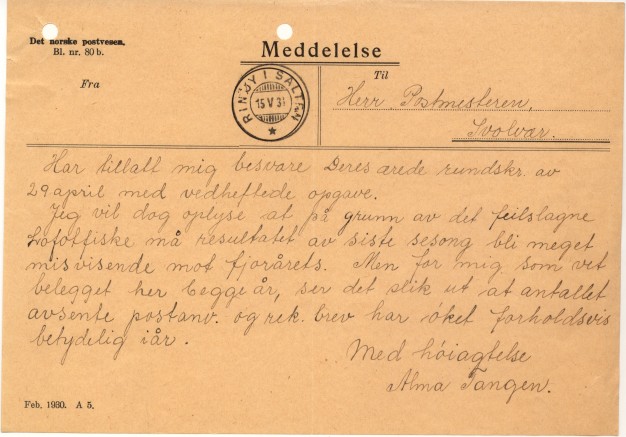 Det norske postvesen.
Bl. nr. 80 b.
Meddelelse
Fra
Til
RINØY I SALTEN
15 V 31
Herr Postmesteren,
Svolvær.
Har tillatt mig besvare Deres ærede rundskr. av
29 april med vedheftede opgave.
Jeg vil dog oplyse at på grunn av det feilslagne
Lofotfiske må resultatet av siste sesong bli meget
misvisende mot fjorårets. Men for mig som vet
belegget her begge år, ser det slik ut at antallet
avsente postanv. og rek. brev har øket forholdsvis
betydelig iår.
Med høiagtelse
Alma Tangen.
Feb. 1930. A 5.